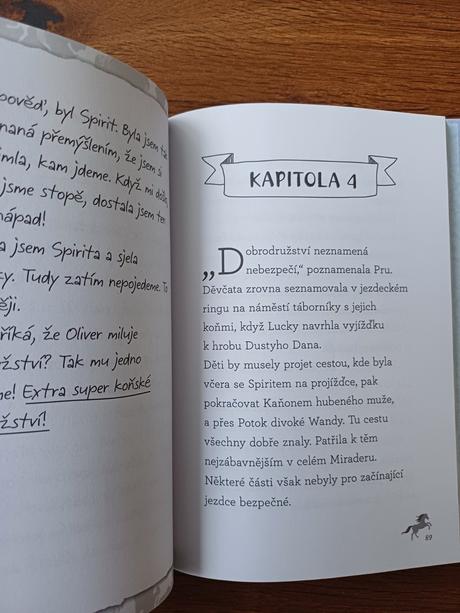 pověď, byl Spirit. Byla jsem tak
naná přemýšlením, že jsem si
imla, kam jdeme. Když mi došlo,
jsme stopě, dostala jsem ten
nápad!
a jsem Spirita a sjela
ky. Tudy zatím nepojedeme. To
ěji.
říká, že Oliver miluje
žství? Tak mu jedno
me! Extra super koňské
žství!
KAPITOLA 4
„Dobrodružství neznamená
nebezpečí,“ poznamenala Pru.
Děvčata zrovna seznamovala v jezdeckém
ringu na náměstí táborníky s jejich
koňmi, když Lucky navrhla vyjížďku
k hrobu Dustyho Dana.
Děti by musely projet cestou, kde byla
včera se Spiritem na projížďce, pak
pokračovat Kaňonem hubeného muže,
a přes Potok divoké Wandy. Tu cestu
všechny dobře znaly. Patřila k těm
nejzábavnějším v celém Miraderu.
Některé části však nebyly pro začínající
jezdce bezpečné.
89